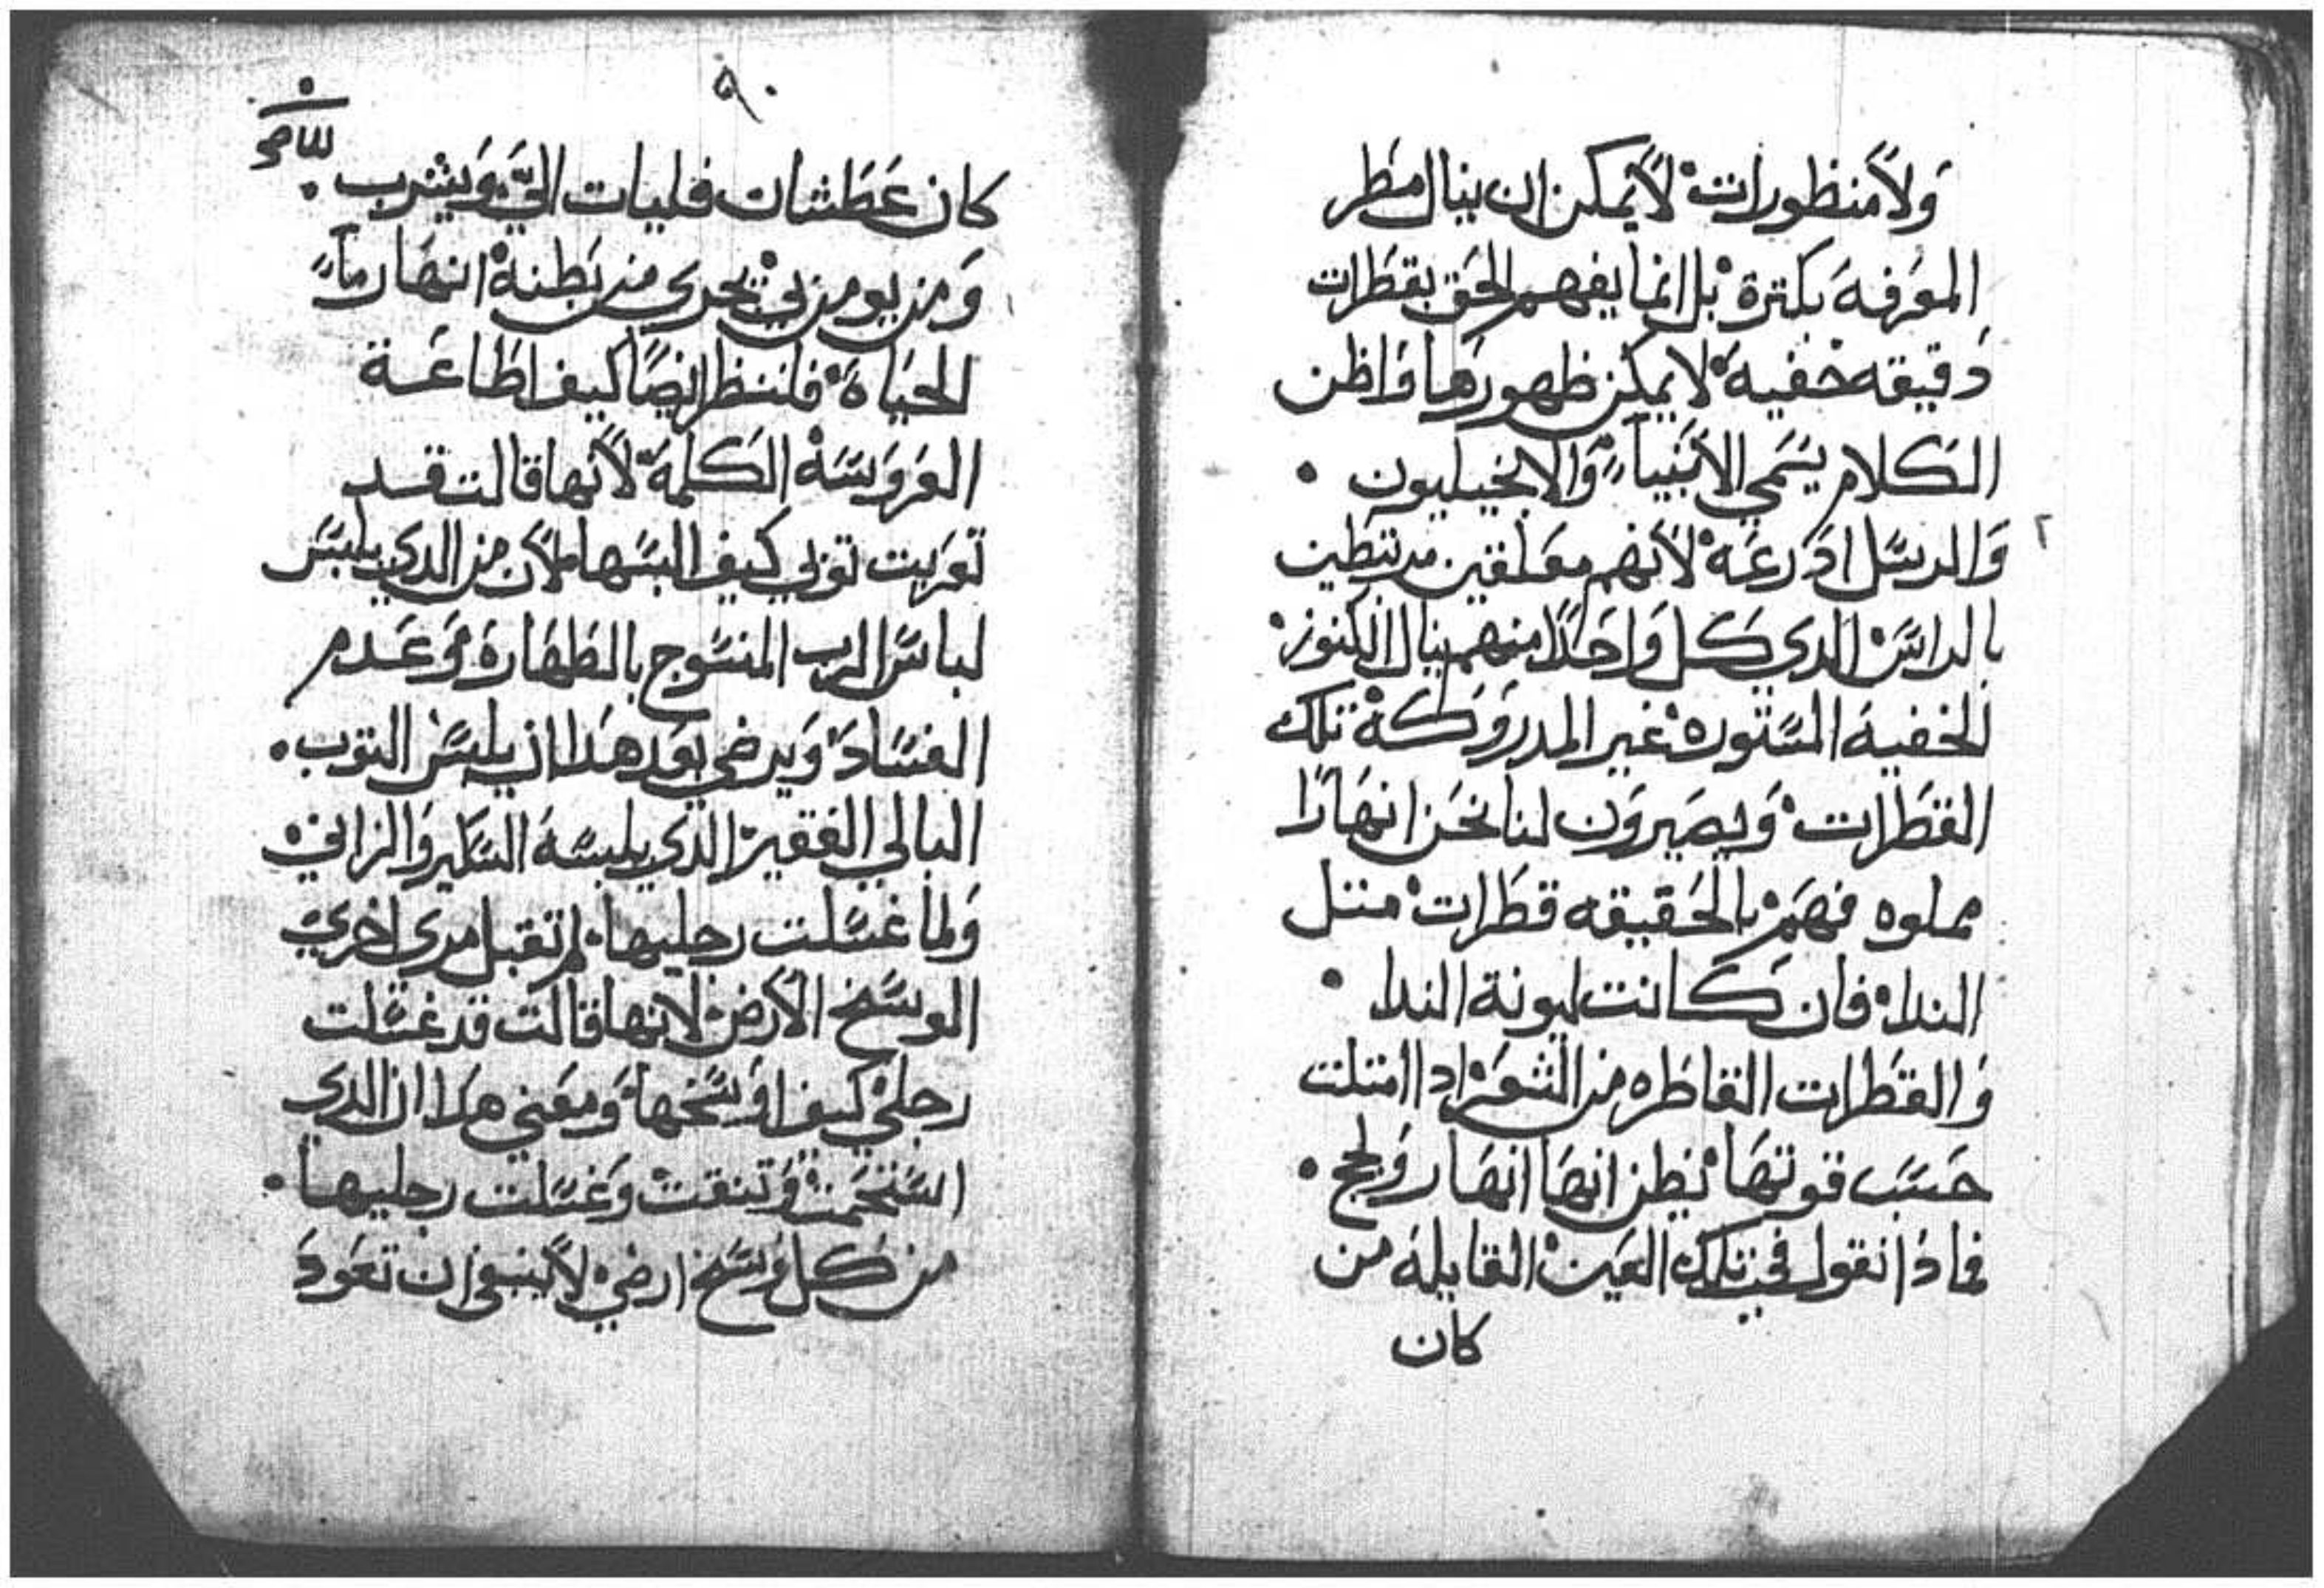 وَلاَ منظورات لاَ يمكن ان ينال مطر
المعَرفة بكترة بل انما يفهم الحَق بقطَرات
دَقيقه خفيه لا يمكن ظهورها وَاظن
الكلام يسَمي الاَنبيآء وَالانجيليون
وَالرسَل ادرعَه لاَنهم معَلقين مرتبطين
بالراسَ الدي كل وَاحَدًا منهم ينال الكنوز
الخفية المسَتوره غير المدروَكة تلك
القطَرات وَيصَيروَن لنا نحَن انهَارًا
مملوه فهَم بالحَقيقه قطَرات متل
الندا فان كانت ليونة الندا
وَالقطَرات القاطَره من الشعَر ادا امتلت
حَسَب قوتهَا نظن انهَا انهَار وَلجج
فمادا نقول في تلك العَين القايلة من
كان
٩٠
كان عَطَشان فليات اليّ وَيشرب
وَمن يومن بي تجري من بَطنه انهَار مآء
الحيَاة فلننظر ايضًا كيف اطَاعَة
العَروَسَة الكلمَة لاَنها قالت قد
تعَريت توبي كيف البسَها لاَن من الدي يلبسَ
لباسَ الرب المنسَوج بالطَهَارة وَعَدم
الفسَاد وَيرضي بعَد هَدا ان يلبسَ التوب
البالي الفقير الدي يلبسَه السَكير وَالزاني
وَلما غسَلت رجليها لم تقبل مرى اخرى
الوسَخ الاَرضي لانها قالت قد غسَلت
رجليّ كيف اوَسَخها وَمعَني هدا ان الدي
استَحَمت وَتنقت وَغسَلت رجليها
من كل وَسَخ ارضي لاَ ينبغي ان تعَود